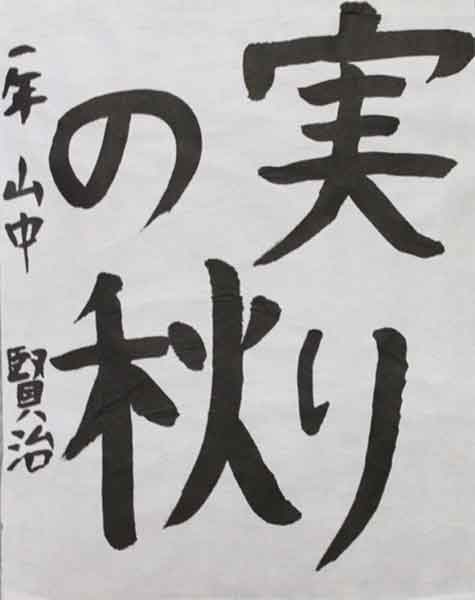 実り
の秋
一年 山中 賢治